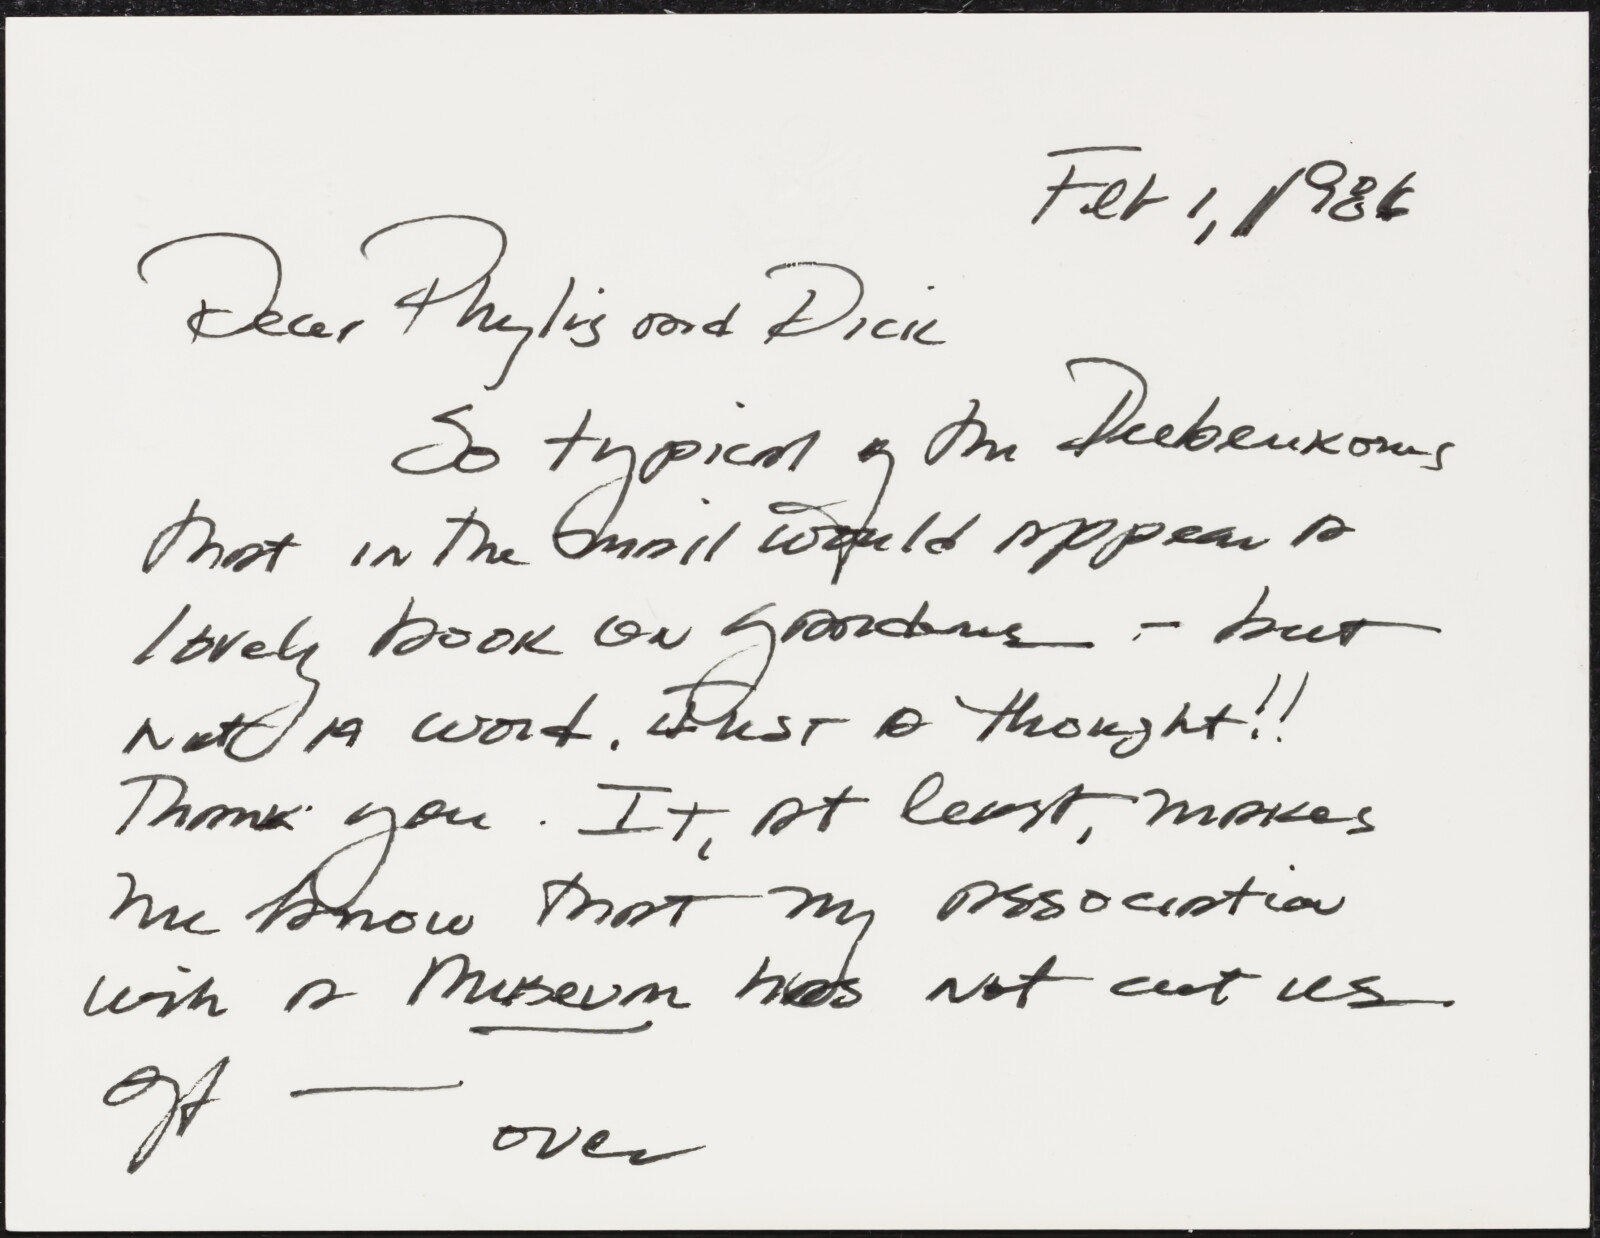 Feb 1, 1986
Dear Phyllis and Dick
So typical of the Diebenkorns
that in the mail would appear a
lovely book on gardens - but
not a word. Just a thought!!
Thank you. It, at least, makes
me know that my association
with a Museum has not cut us
off —
over